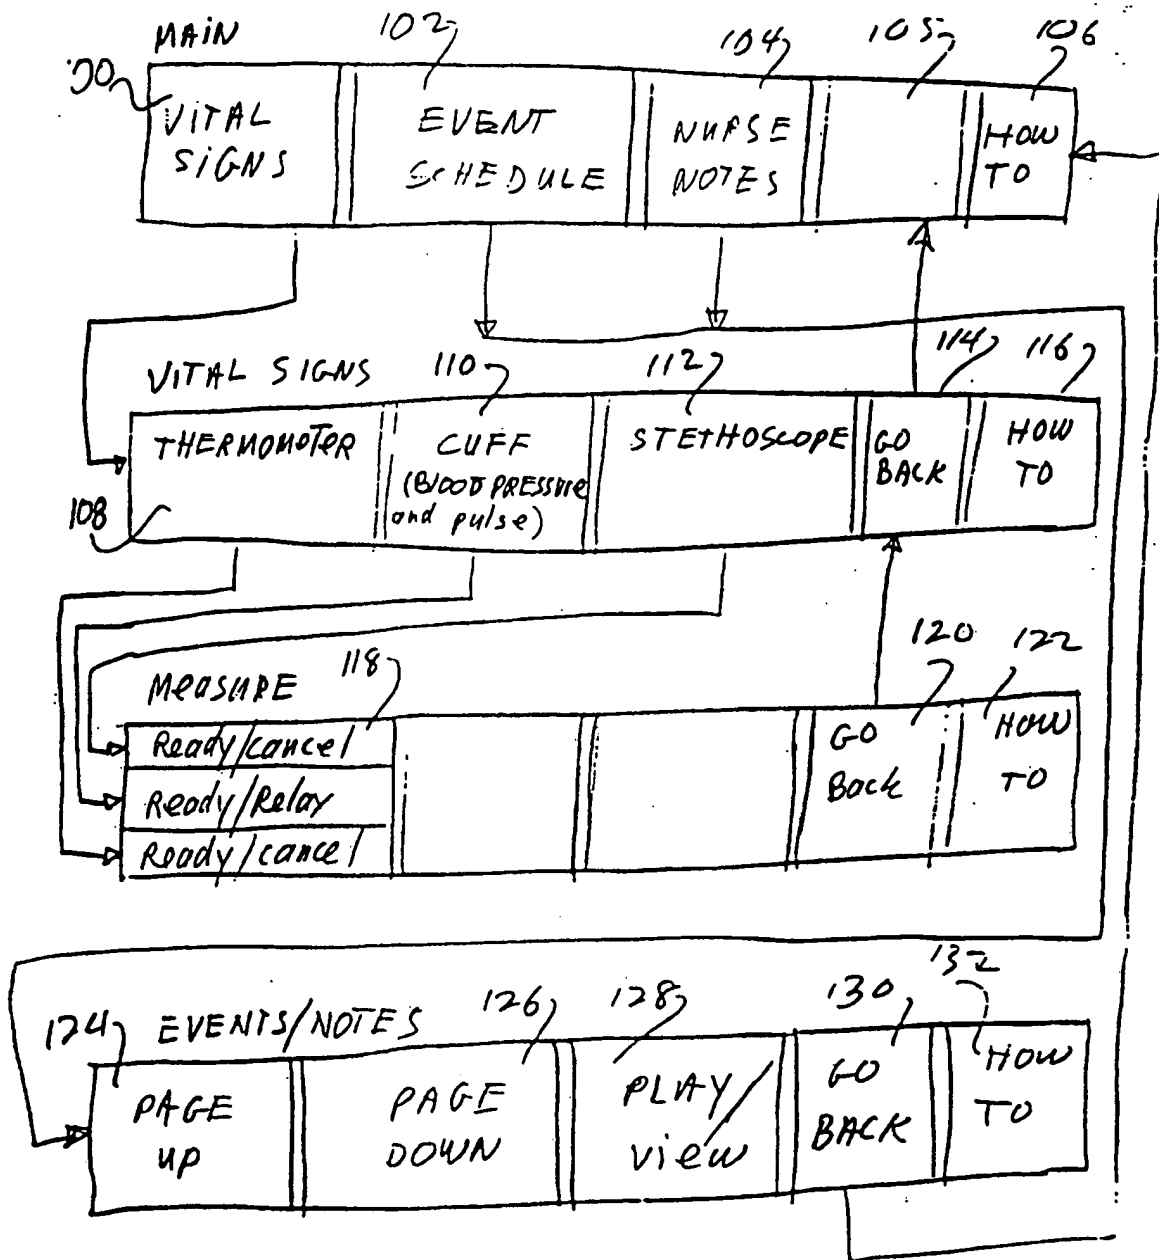 MAIN
102
104
105
106
VITAL
SIGNS
EVENT
SCHEDULE
NURSE
NOTES
HOW
TO
VITAL SIGNS
110
112
114
116
THERMOMETER
CUFF
(BLOOD PRESSURE
and pulse)
STETHOSCOPE
GO
BACK
HOW
TO
108
MEASURE
118
120
122
Ready/cancel
Ready/Relay
Ready/cancel
GO
Back
HOW
TO
124
EVENTS/NOTES
126
128
130
132
PAGE
UP
PAGE
DOWN
PLAY/
view
GO
BACK
HOW
TO